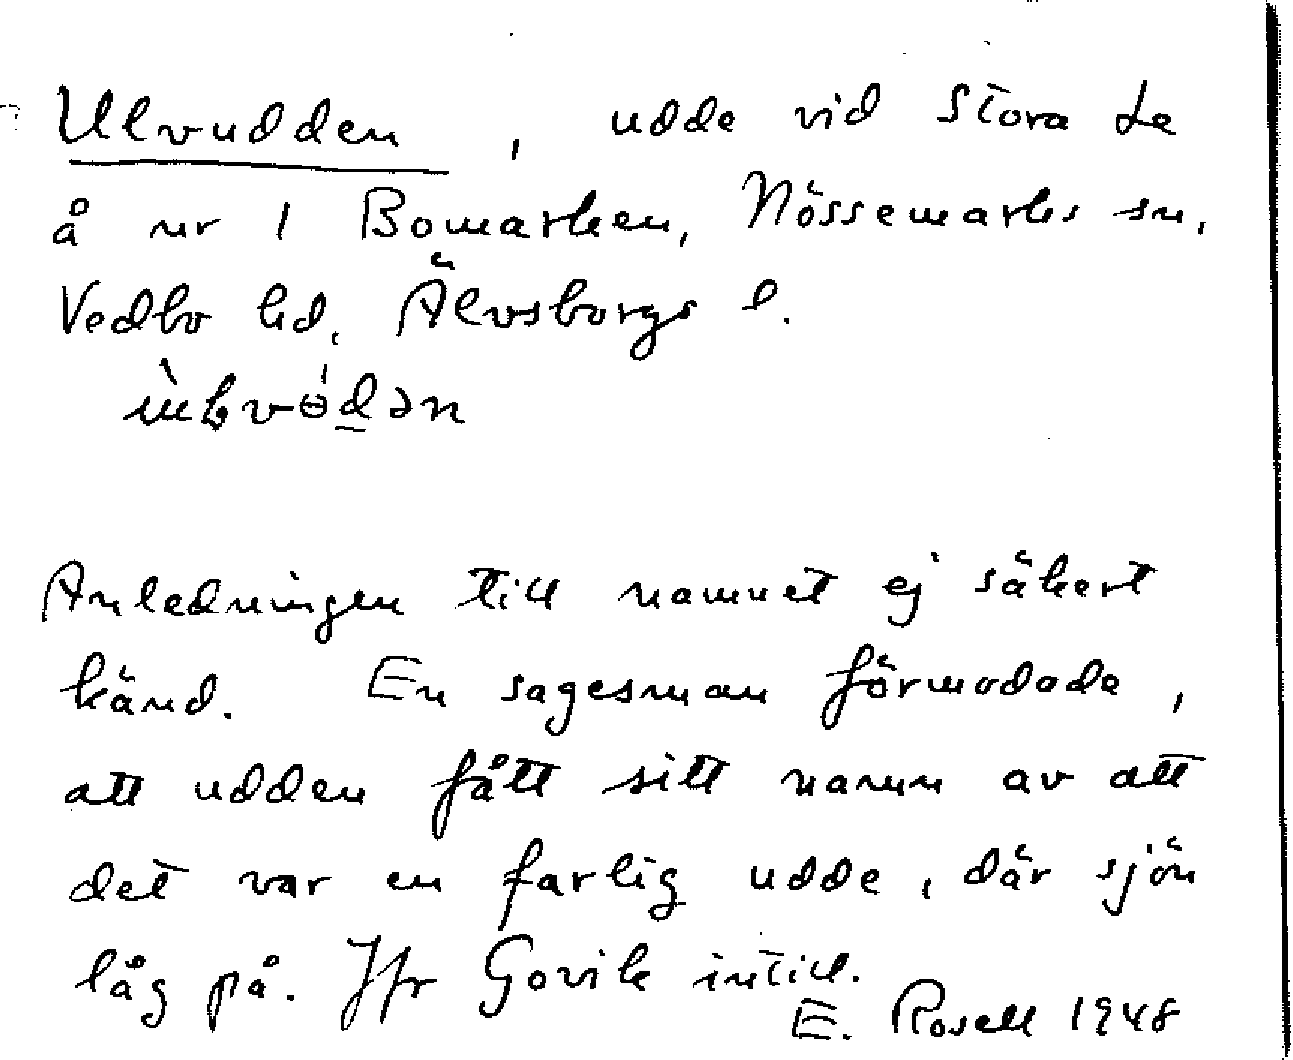 Ulvudden, udde vid Stora Le
å nr 1 Bomarken, Nössemarks sn,
Vedbo hd, Älvsborgs l.
Anledningen till namnet ej säkert
känd. En sagesman förmodade,
att udden fått sitt namn av att
det var en farlig udde, där sjön
låg på. Jfr Govik intill.
E. Rosell 1948